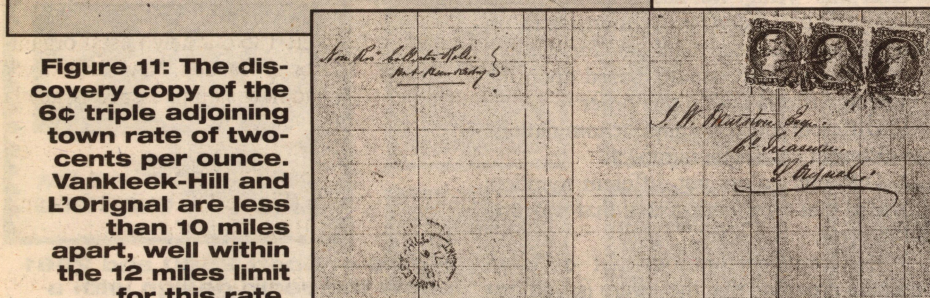 Figure 11: The dis-
covery copy of the
6¢ triple adjoining
town rate of two-
cents per ounce.
Vankleek-Hill and
L'Orignal are less
than 10 miles
apart, well within
the 12 miles limit
for this rate.
Non Res' Collector Roll.
J. W. Marston Esqr.
Co Treasurer.
L'Orignal.
VANKLEEK-HILL